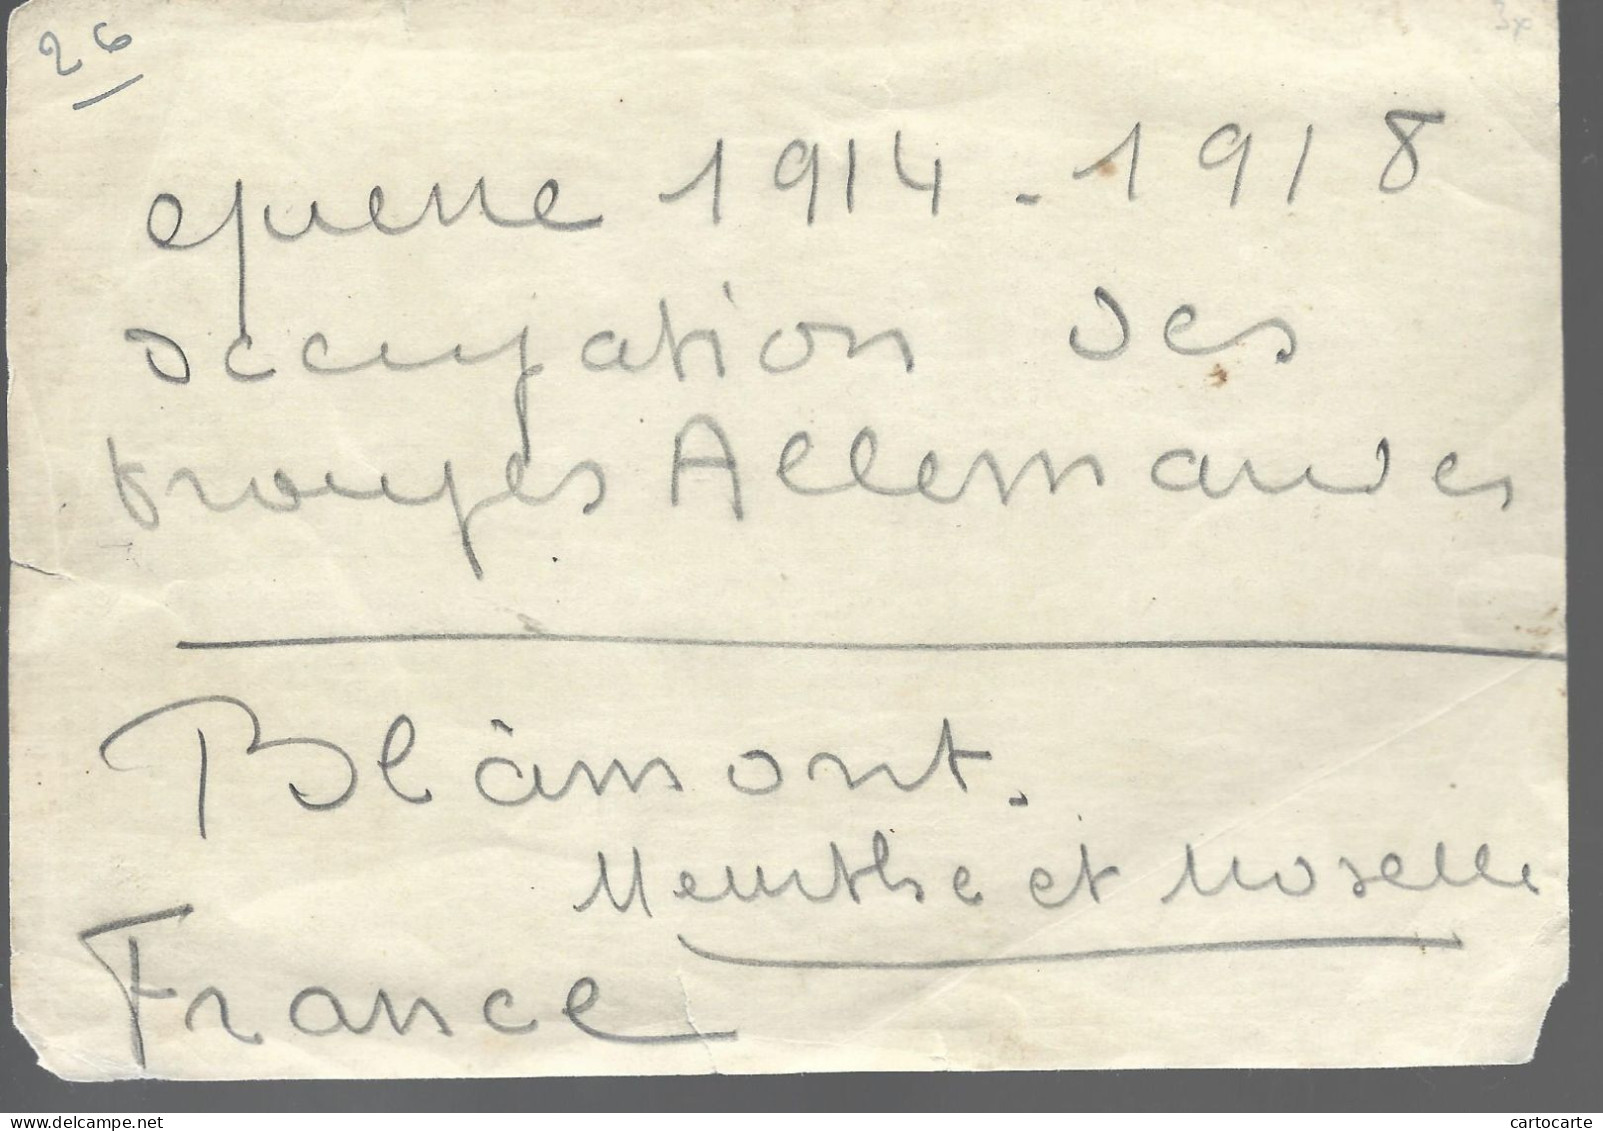 26
guerre 1914-1918
occupation des
troupes Allemandes
Blâmont.
Meurthe et Moselle
France
www.delcampe.net
cartocarte